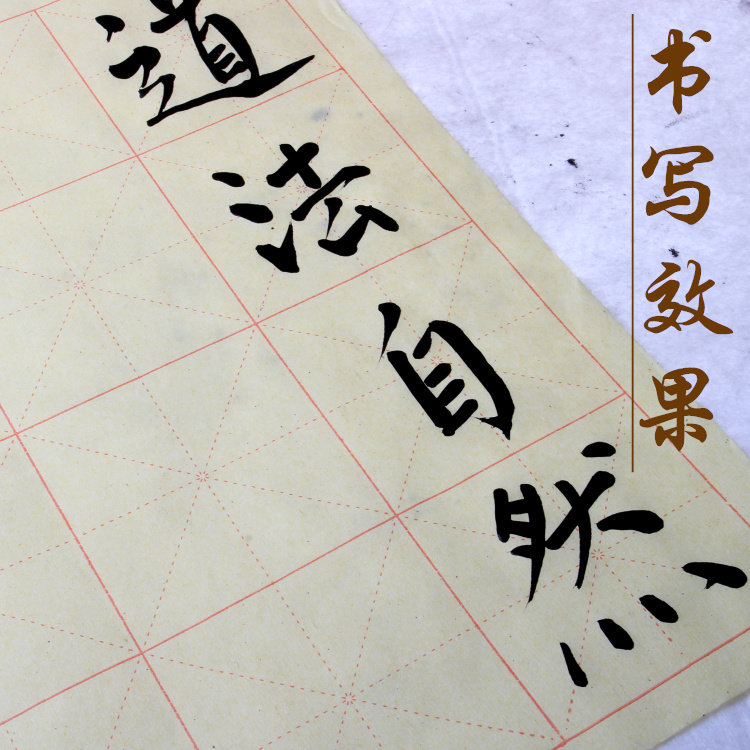 道法自然
书写效果